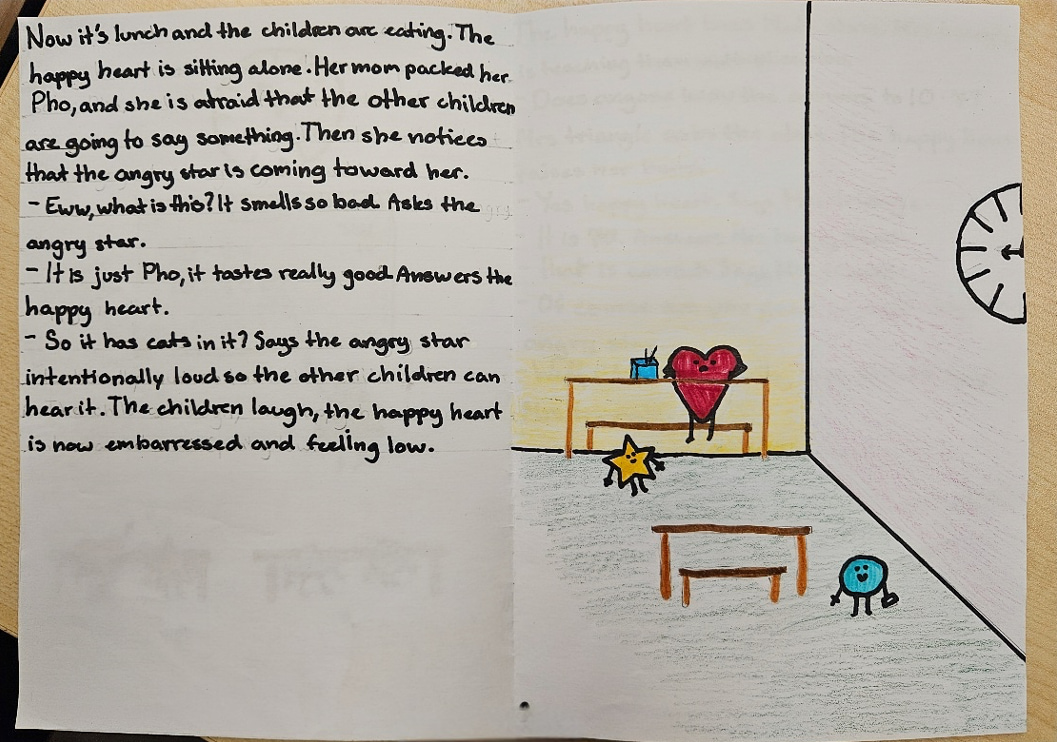 Now it's lunch and the children are eating. The
happy heart is sitting alone. Her mom packed her
Pho, and she is afraid that the other children
are going to say something. Then she notices
that the angry star is coming toward her.
- Eww, what is this? It smells so bad. Asks the
angry star.
- It is just Pho, it tastes really good. Answers the
happy heart.
- So it has cats in it? Says the angry star
intentionally loud so the other children can
hear it. The children laugh, the happy heart
is now embarressed and feeling low.